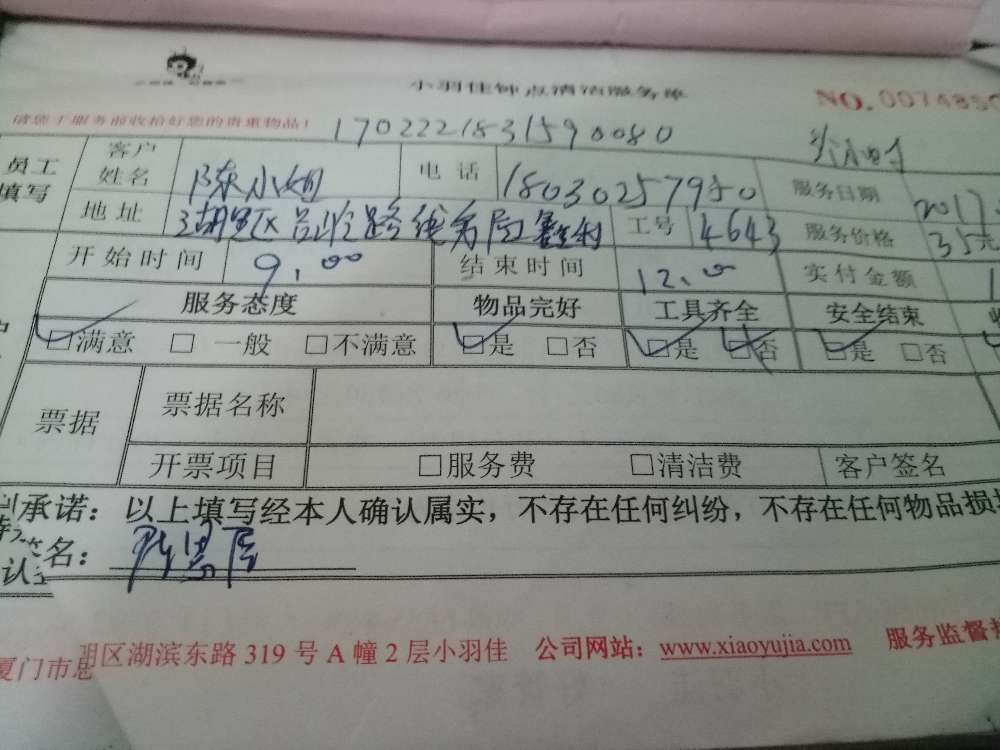 小羽佳钟点清洁服务单 NO.0074850
请您于服务前收拾好您的贵重物品! 1702221831590080
员工填写 客户姓名 陈小姐 电话 18030257950 服务日期 2017
地址 湖里区吕岭路 工号 4643 服务价格 35元
开始时间 9:00 结束时间 12:00 实付金额
服务态度 物品完好 工具齐全 安全结束
☑满意 □一般 □不满意 ☑是 □否 ☑是 ☑否 ☑是 □否
票据 票据名称
开票项目 □服务费 □清洁费 客户签名
承诺：以上填写经本人确认属实，不存在任何纠纷，不存在任何物品损
名：
厦门市思明区湖滨东路 319 号 A 幢 2 层小羽佳 公司网站：www.xiaoyujia.com 服务监督